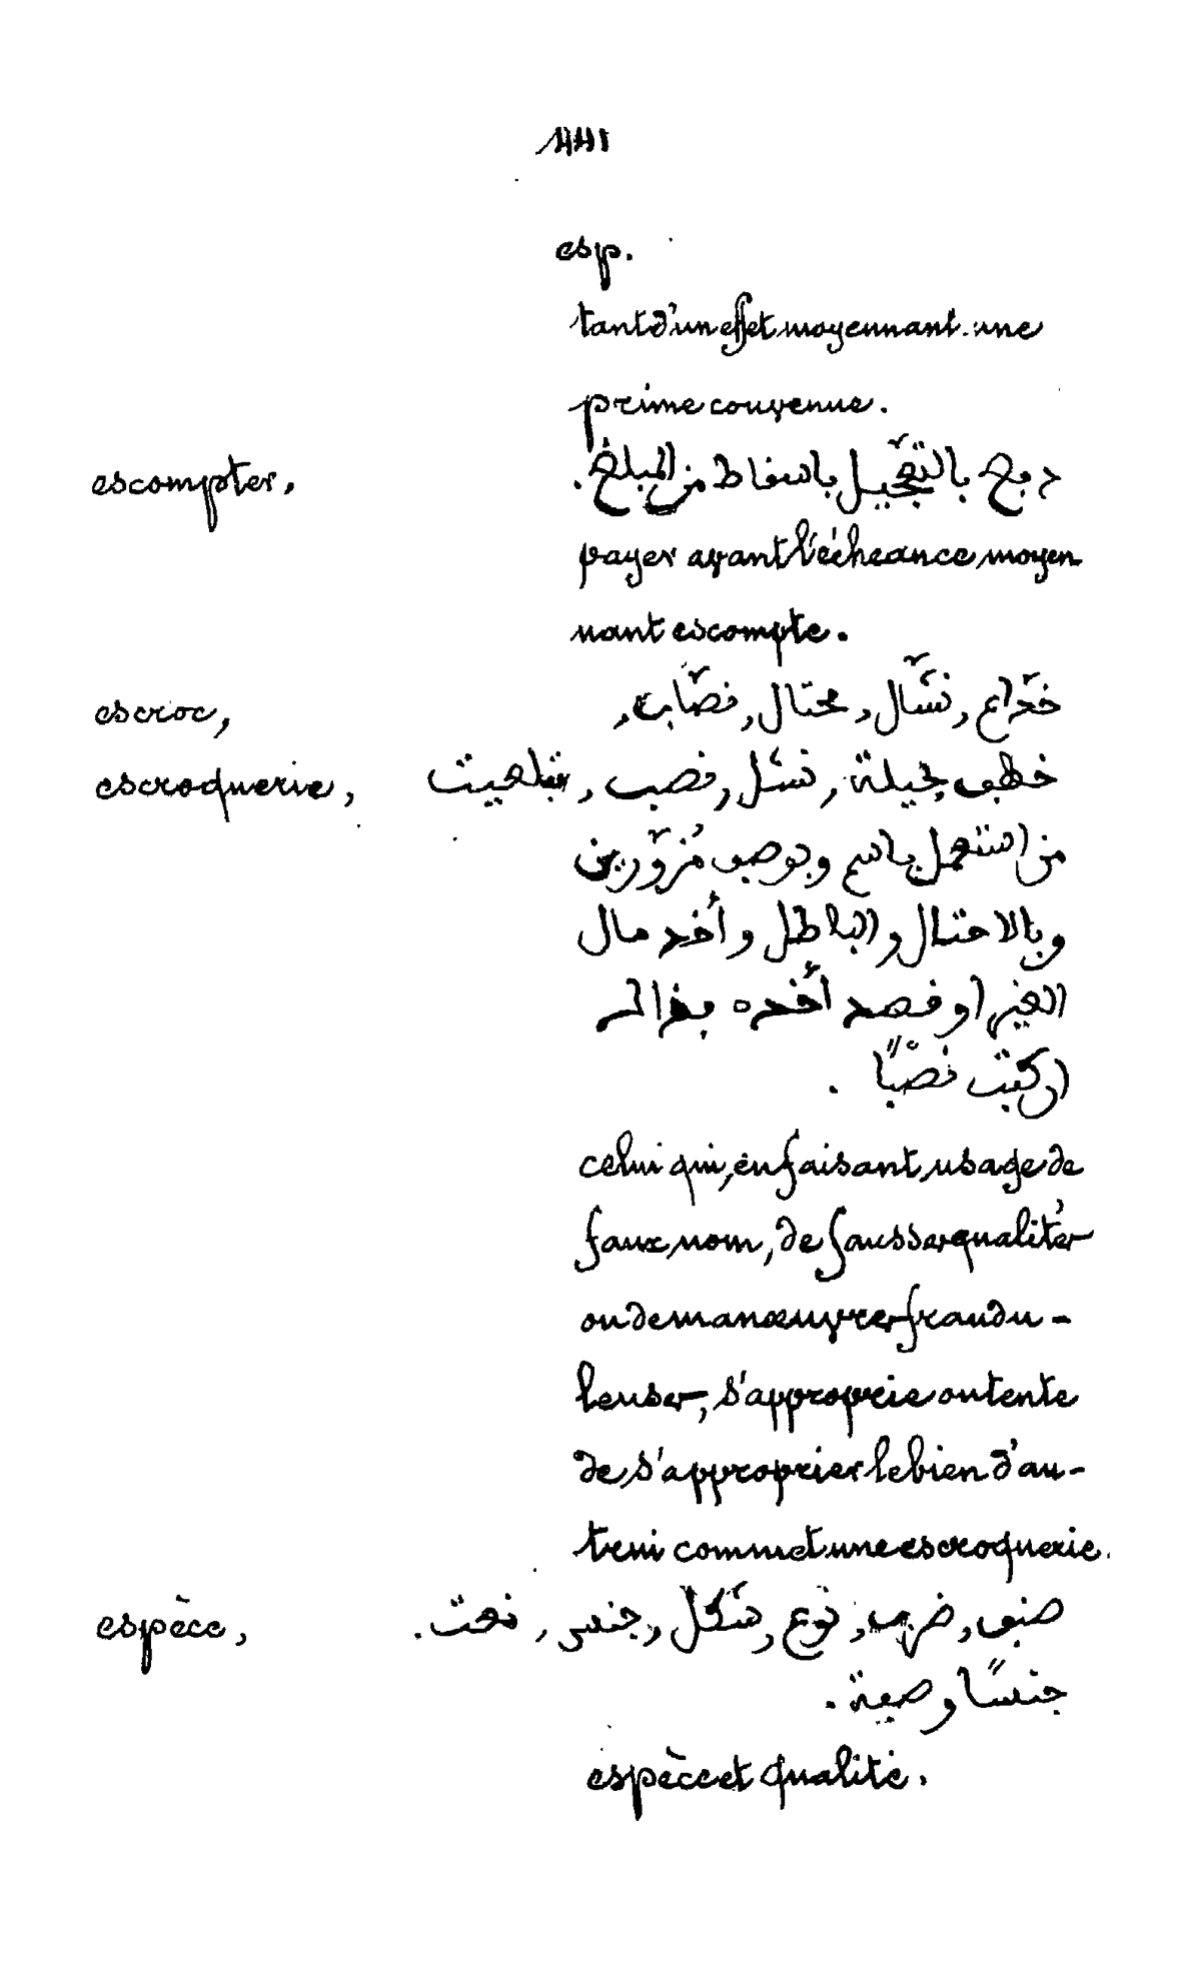 esp.
tant d'un effet moyennant une
prime convenue.
escompter, دفع بالتعجيل باسقاط من المبلغ.
payer avant l'échéance moyen
nant escompte.
escroc, خدّاع, نشّال, محتال, نصّاب,
escroquerie, خطف بحيلة, نشل, نصب,
من استعمل باسم وبوصف مُزوّرين
وبالاحتيال والباطل وأخد مال
الغير او قصد أخده بذالك
ارتكب نصبًا.
celui qui, en faisant, usage de
faux, nom, de fausses qualités
ou de manœuvres fraudu-
leuses, s'approprie ou tente
de s'approprier le bien d'au-
trui commet une escroquerie.
espèce, صنف, ضرب, نوع, شكل, جنس, نعت.
جنسًا وصفة.
espèce et qualité.